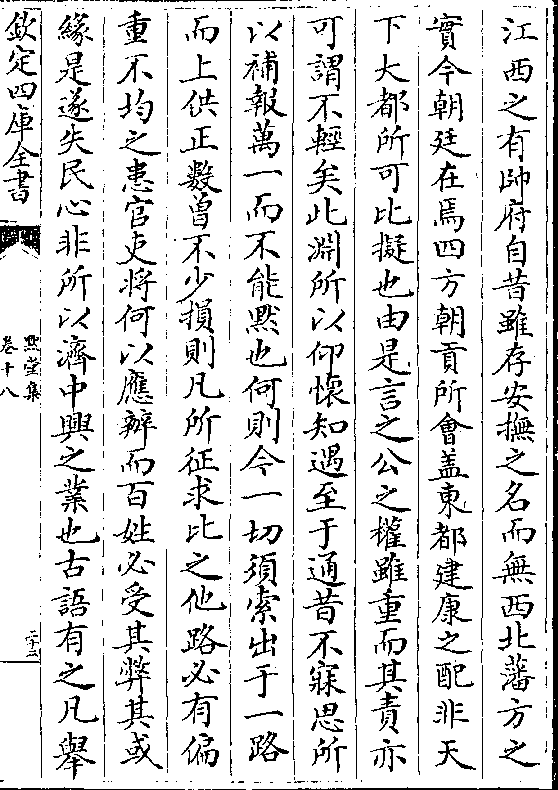 江西之有帥府自昔雖存安撫之名而無西北藩方之
實今朝廷在焉四方朝貢所會盖東都建康之配非天
下大都所可比擬也由是言之公之權雖重而其責亦
可謂不輕矣此淵所以仰懷知遇至于通昔不寐思所
以補報萬一而不能黙也何則今一切須索出于一路
而上供正數曽不少損則凡所征求比之他路必有偏
重不均之患官吏將何以應辦而百姓必受其弊其或
緣是遂失民心非所以濟中興之業也古語有之凡舉
欽定四庫全書
黙堂集
卷十八
二十三